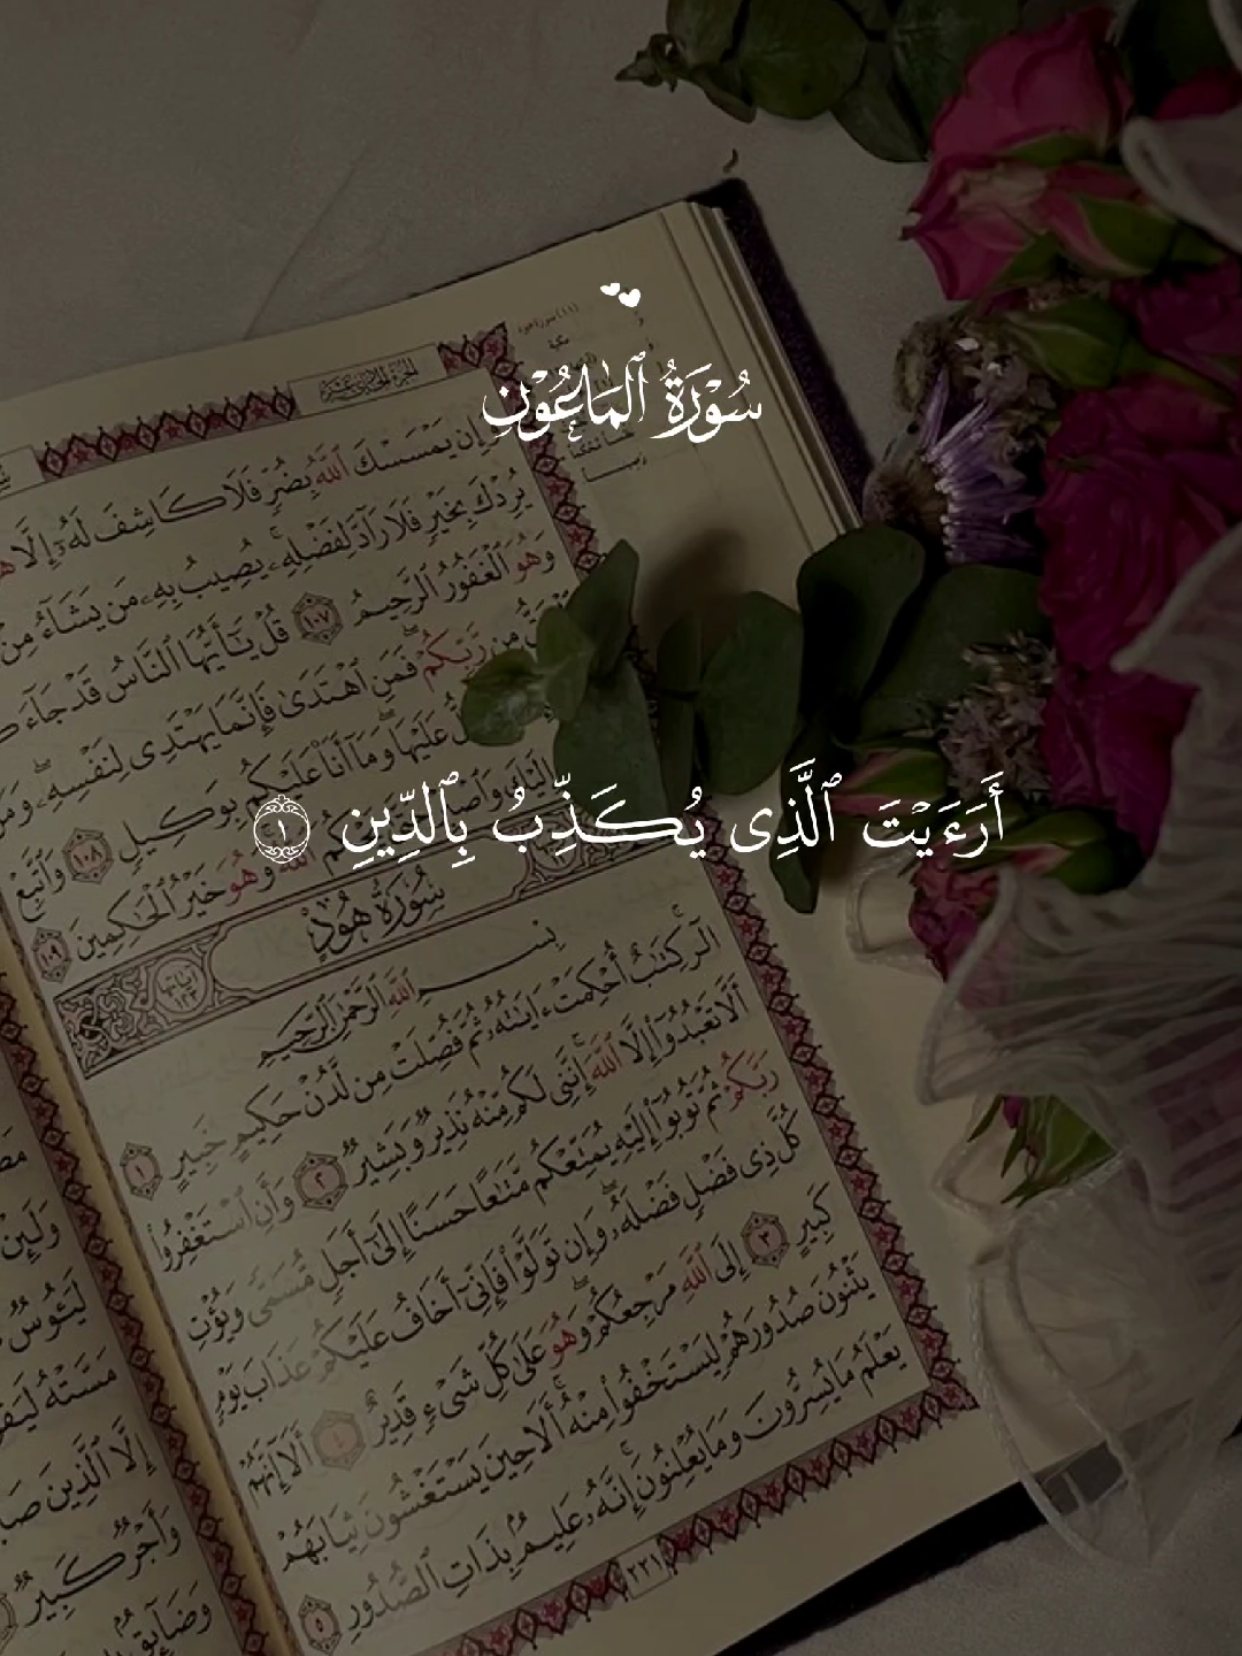 سُوْرَةُ ٱلْمَاعُوْنِ
أَرَءَيْتَ ٱلَّذِى يُكَذِّبُ بِٱلدِّينِ ١
يَمْسَسْكَ ٱللَّهُ بِضُرٍّ فَلَا كَاشِفَ لَهُۥٓ إِلَّا
يُرِدْكَ بِخَيْرٍ فَلَا رَآدَّ لِفَضْلِهِۦ ۚ يُصِيبُ بِهِۦ مَن يَشَآءُ مِنْ
وَهُوَ ٱلْغَفُورُ ٱلرَّحِيمُ ١٠٧ قُلْ يَٰٓأَيُّهَا ٱلنَّاسُ قَدْ جَآءَ
مِن رَّبِّكُمْ ۖ فَمَنِ ٱهْتَدَىٰ فَإِنَّمَا يَهْتَدِى لِنَفْسِهِۦ ۖ وَمَن
عَلَيْهَا ۖ وَمَآ أَنَا۠ عَلَيْكُم بِوَكِيلٍ ١٠٨ وَٱتَّبِعْ
إِلَيْكَ وَهُوَ خَيْرُ ٱلْحَٰكِمِينَ ١٠٩
سُورَةُ هُودٍ
بِسْمِ ٱللَّهِ ٱلرَّحْمَٰنِ ٱلرَّحِيمِ
الٓر ۚ كِتَٰبٌ أُحْكِمَتْ ءَايَٰتُهُۥ ثُمَّ فُصِّلَتْ مِن لَّدُنْ حَكِيمٍ خَبِيرٍ ١
أَلَّا تَعْبُدُوٓا۟ إِلَّا ٱللَّهَ ۚ إِنَّنِى لَكُم مِّنْهُ نَذِيرٌ وَبَشِيرٌ ٢ وَأَنِ ٱسْتَغْفِرُوا۟
رَبَّكُمْ ثُمَّ تُوبُوٓا۟ إِلَيْهِ يُمَتِّعْكُم مَّتَٰعًا حَسَنًا إِلَىٰٓ أَجَلٍ مُّسَمًّى وَيُؤْتِ
كُلَّ ذِى فَضْلٍ فَضْلَهُۥ ۖ وَإِن تَوَلَّوْا۟ فَإِنِّىٓ أَخَافُ عَلَيْكُمْ عَذَابَ يَوْمٍ
كَبِيرٍ ٣ إِلَى ٱللَّهِ مَرْجِعُكُمْ ۖ وَهُوَ عَلَىٰ كُلِّ شَىْءٍ قَدِيرٌ ٤ أَلَآ إِنَّهُمْ
يَثْنُونَ صُدُورَهُمْ لِيَسْتَخْفُوا۟ مِنْهُ ۚ أَلَا حِينَ يَسْتَغْشُونَ ثِيَابَهُمْ
يَعْلَمُ مَا يُسِرُّونَ وَمَا يُعْلِنُونَ ۚ إِنَّهُۥ عَلِيمٌۢ بِذَاتِ ٱلصُّدُورِ ٥
٢٢١
وَلَئِنْ
لَيَـُٔوسٌ
مَسَّتْهُ
إِلَّا ٱلَّذِينَ
وَأَجْرٌ كَبِيرٌ
وَضَآئِقٌۢ